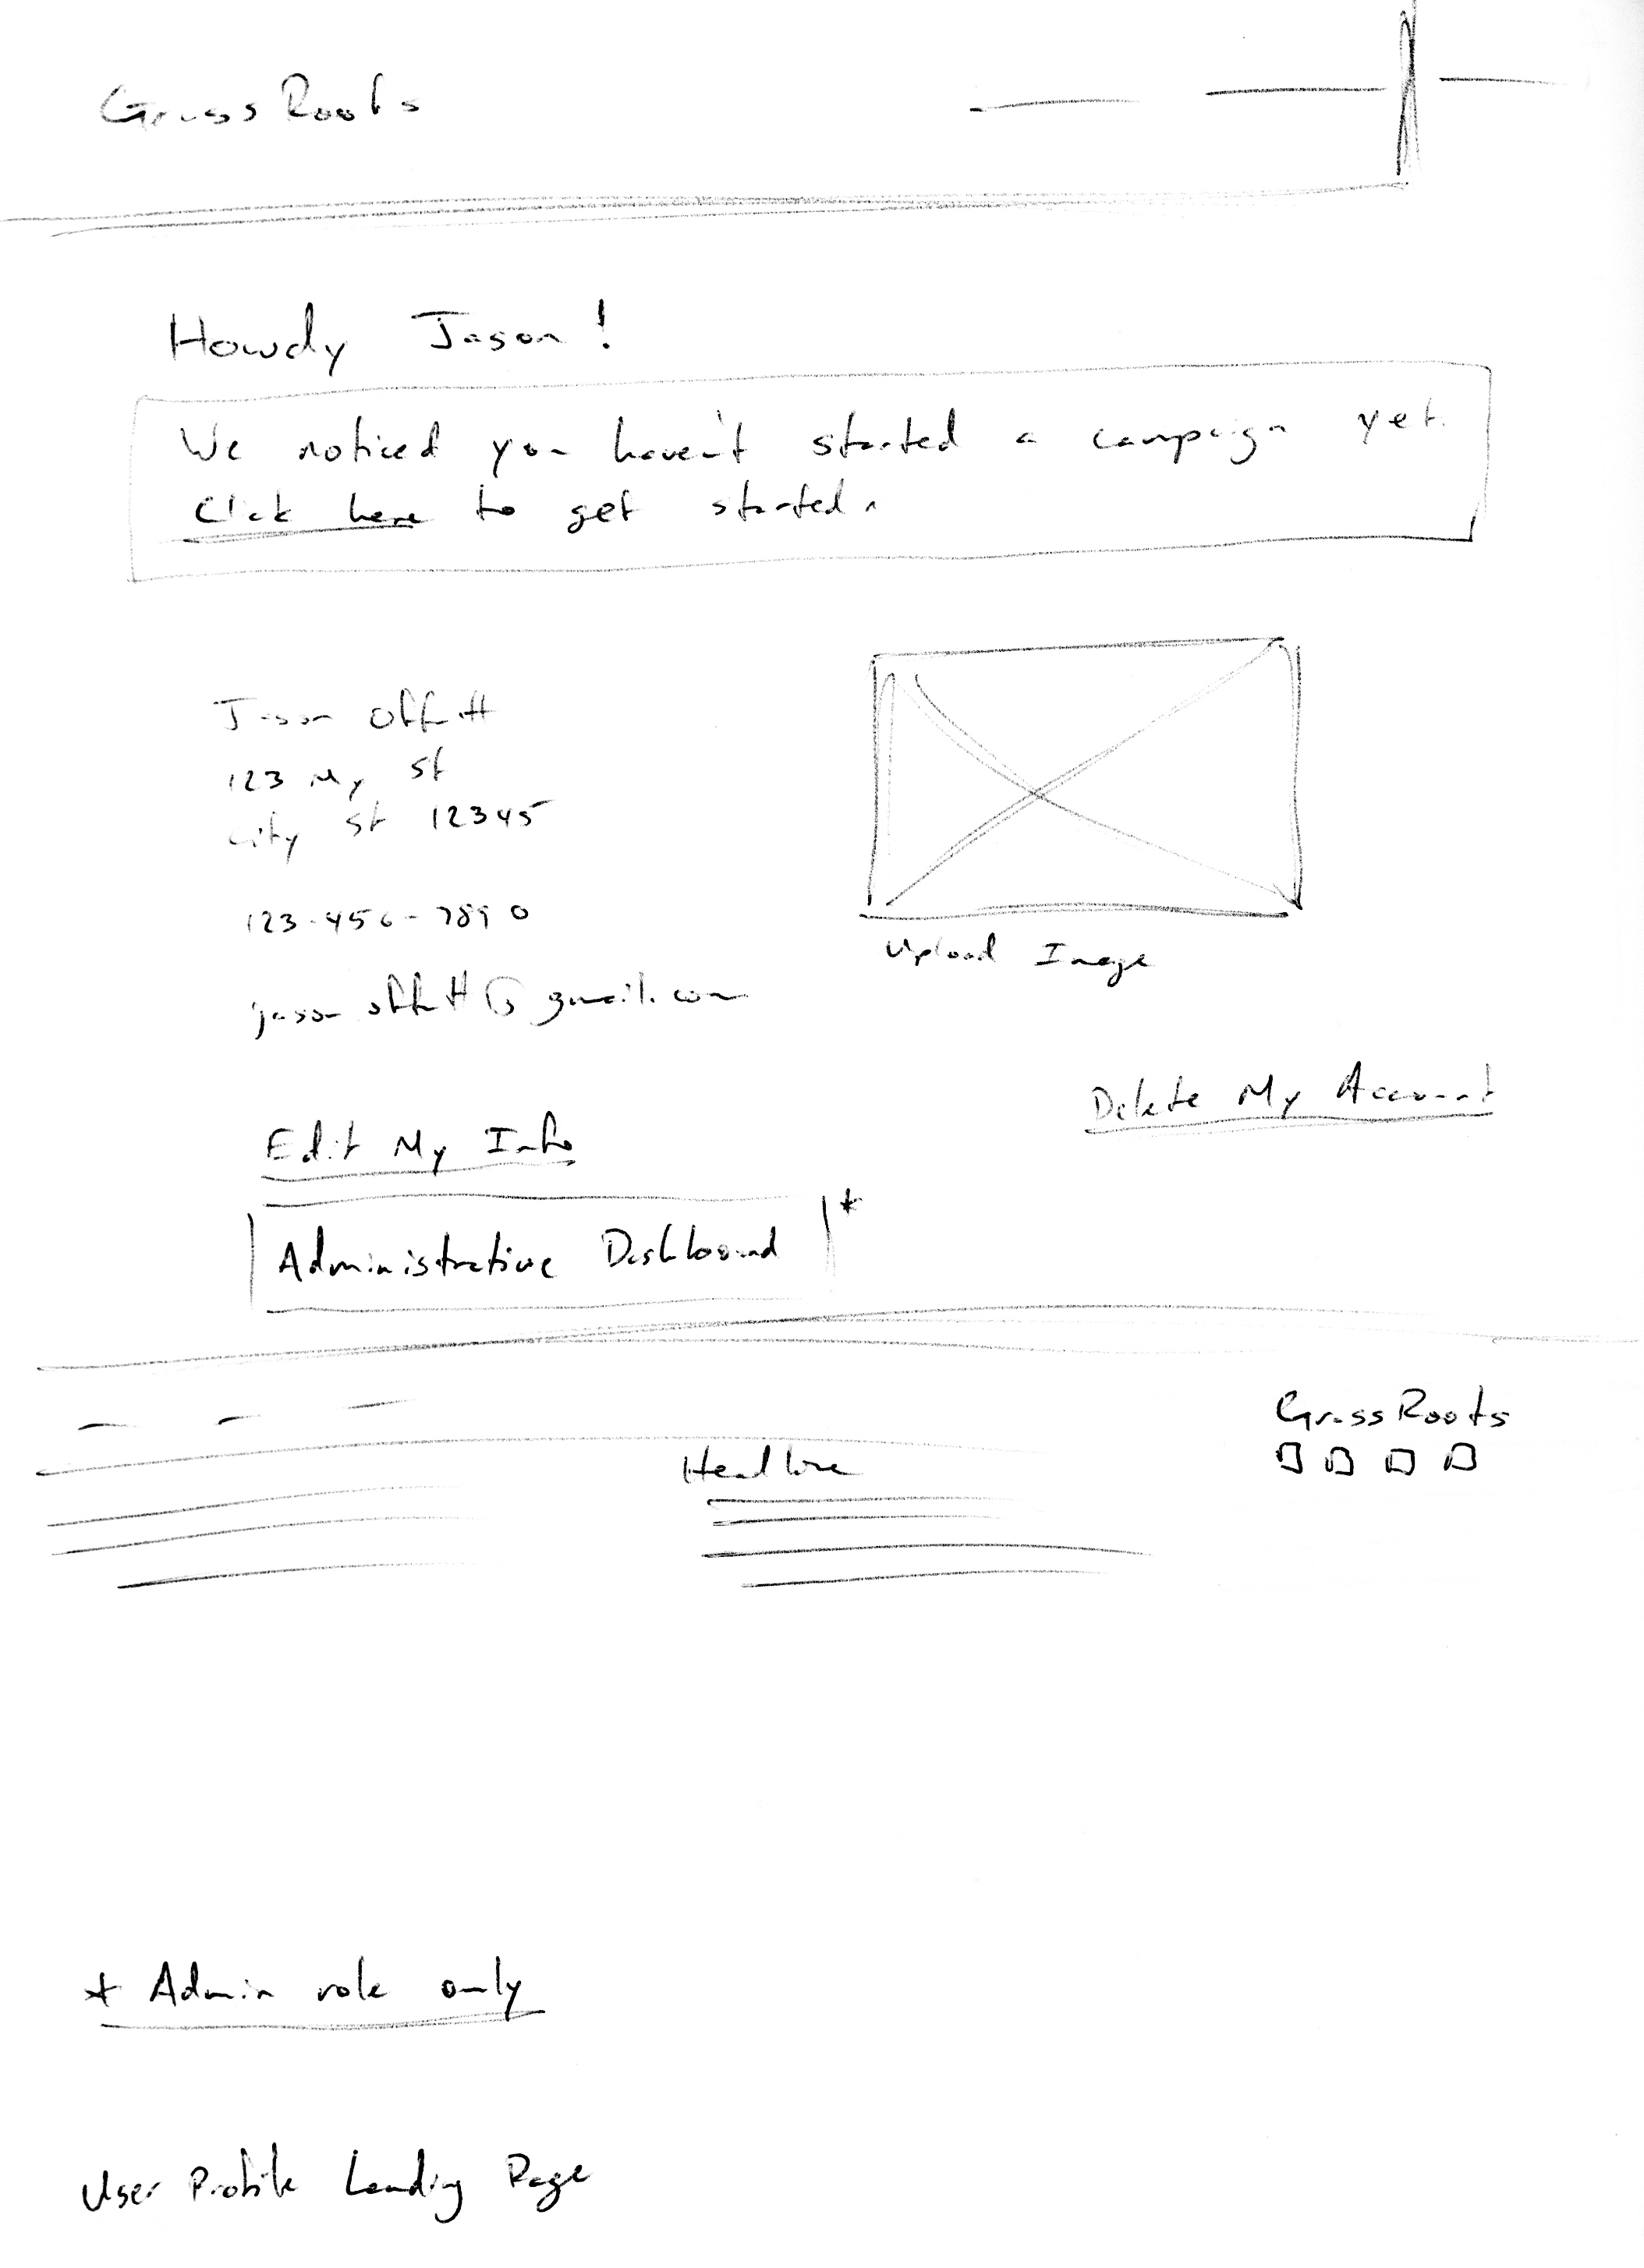 GrassRoots
Howdy Jason!
We noticed you haven't started a campaign yet.
Click here to get started.
Jason Offutt
123 My St
City St 12345
123-456-7890
jasonoffutt@gmail.com
Upload Image
Delete My Account
Edit My Info
Administrative Dashboard *
GrassRoots
Headline
* Admin role only
User Profile Landing Page